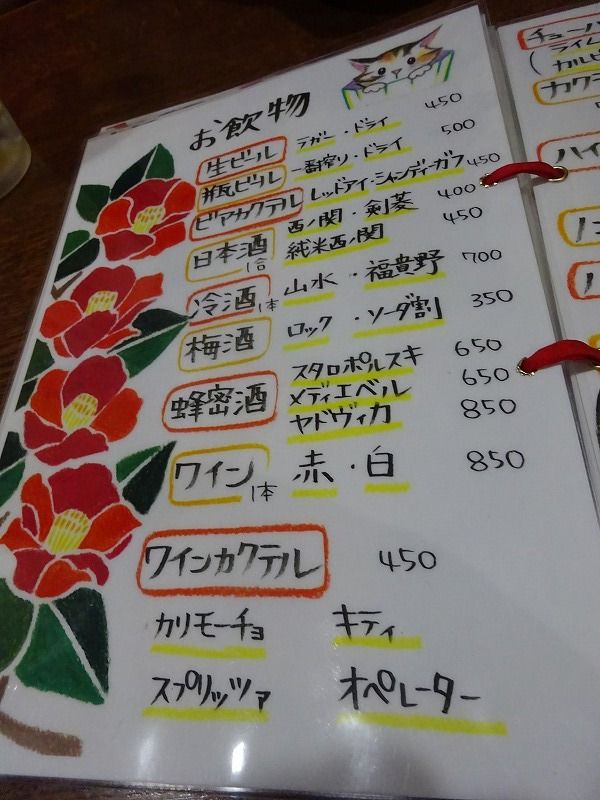 お飲物
生ビール ラガー・ドライ 450
瓶ビール 一番搾り・ドライ 500
ビアカクテル レッドアイ・シャンディーガフ 450
日本酒 1合 西ノ関・剣菱 400
純米西ノ関 450
冷酒 1本 山水・福貴野 700
梅酒 ロック・ソーダ割 350
蜂蜜酒 スタロポルスキ 650
メディエベル 650
ヤドヴィカ 850
ワイン 1本 赤・白 850
ワインカクテル 450
カリモーチョ キティ
スプリッツァ オペレーター
チューハ
(ライム
カルピ
カクテ
ハイ